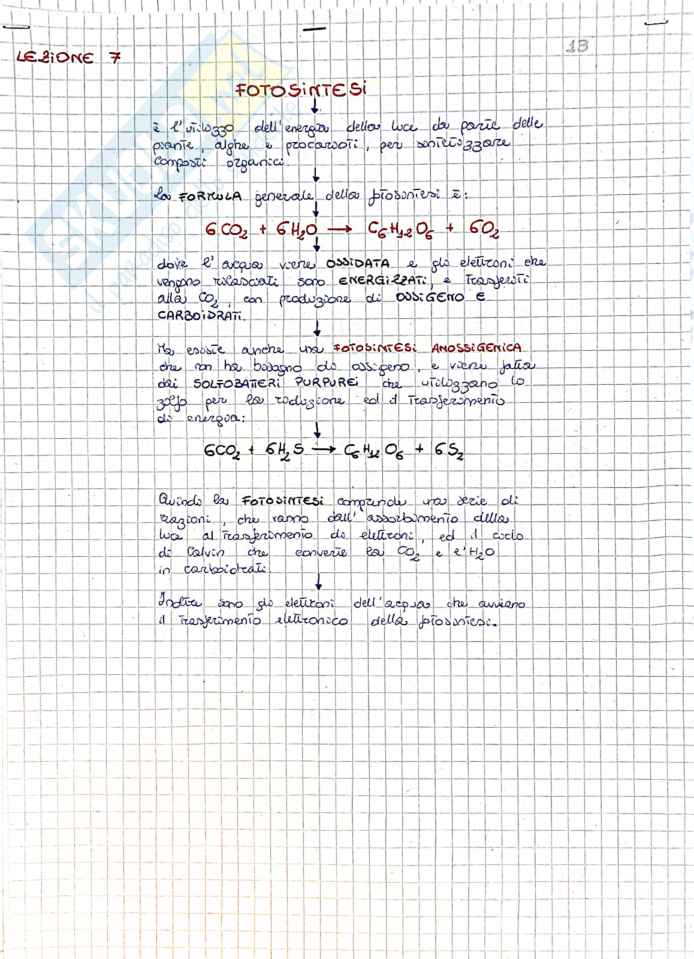 LEZIONE 7
13
FOTOSINTESI
è l'utilizzo dell'energia della luce da parte delle
piante, alghe e procarioti, per sintetizzare
composti organici.
La FORMULA generale della fotosintesi è:
6CO₂ + 6H₂O → C₆H₁₂O₆ + 6O₂
dove l'acqua viene OSSIDATA e gli elettroni che
vengono rilasciati sono ENERGIZZATI, e trasferiti
alla CO₂, con produzione di OSSIGENO E
CARBOIDRATI.
Ma esiste anche una FOTOSINTESI ANOSSIGENICA
che non ha bisogno di ossigeno, e viene fatta
dai SOLFOBATERI PURPUREI che utilizzano lo
zolfo per la riduzione ed il trasferimento
di energia:
6CO₂ + 6H₂S → C₆H₁₂O₆ + 6S₂
Quindi la FOTOSINTESI comprende una serie di
reazioni, che vanno dall'assorbimento della
luce al trasferimento di elettroni, ed il ciclo
di Calvin che converte la CO₂ e l'H₂O
in carboidrati.
Inoltre sono gli elettroni dell'acqua che avviano
il trasferimento elettronico della fotosintesi.